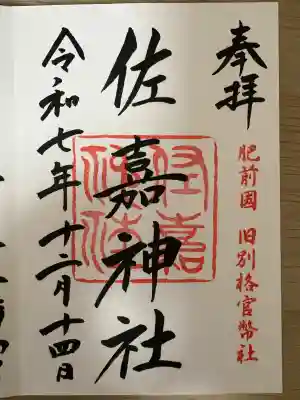 奉拝
肥前國 旧別格官幣社
佐嘉神社
令和七年十二月十四日